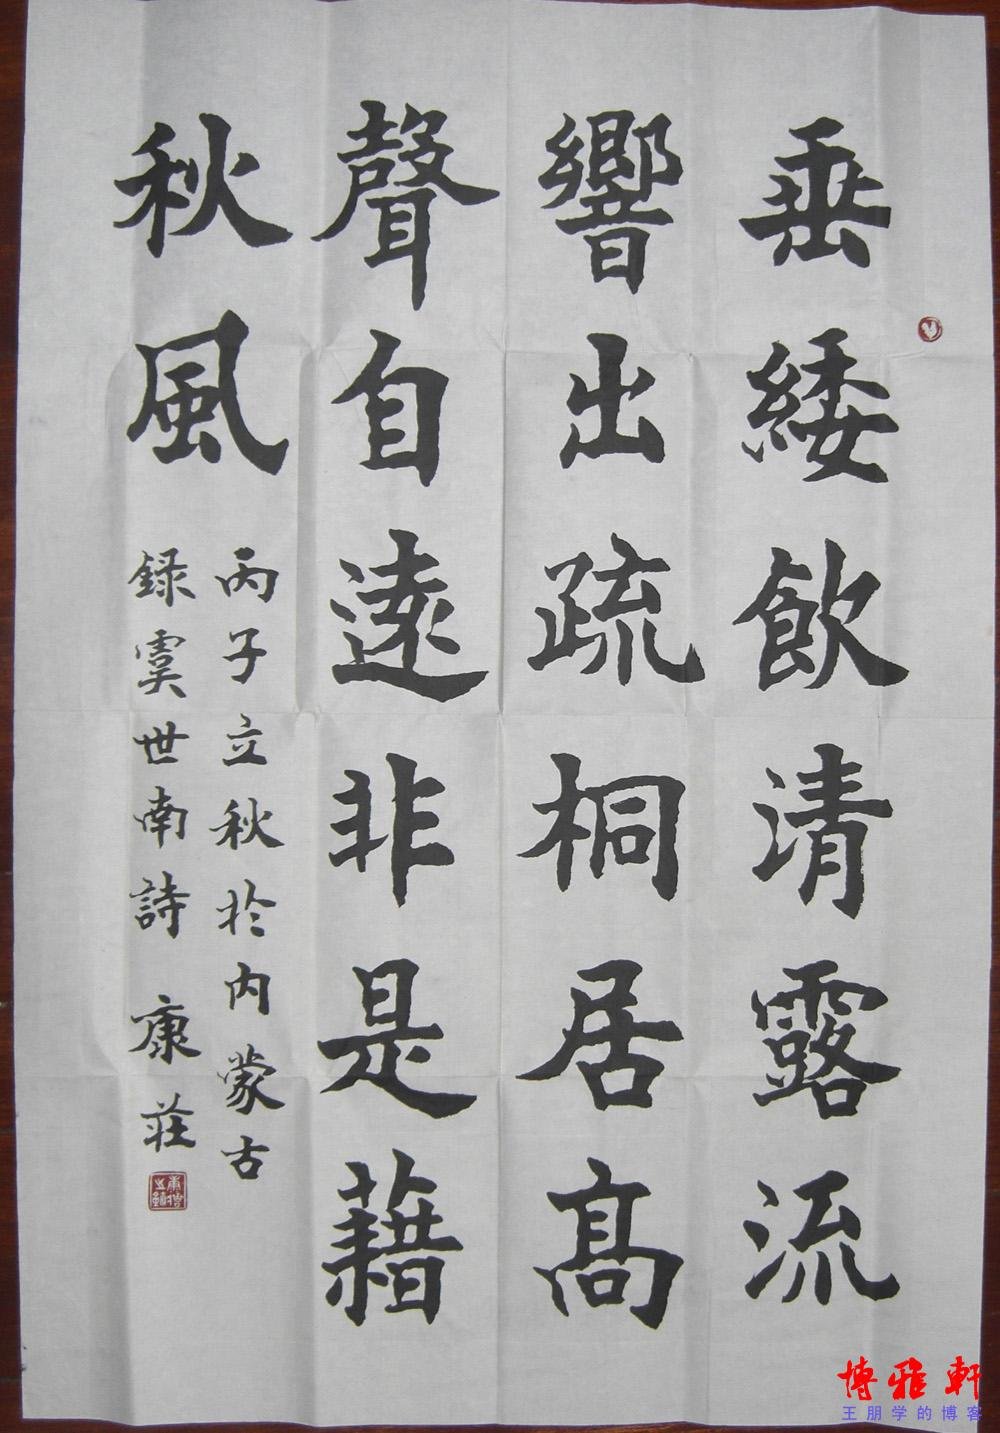 垂緌飲清露流
響出疏桐居高
聲自遠非是藉
秋風
丙子立秋於内蒙古
録虞世南詩 康莊
博雅軒
王朋学的博客